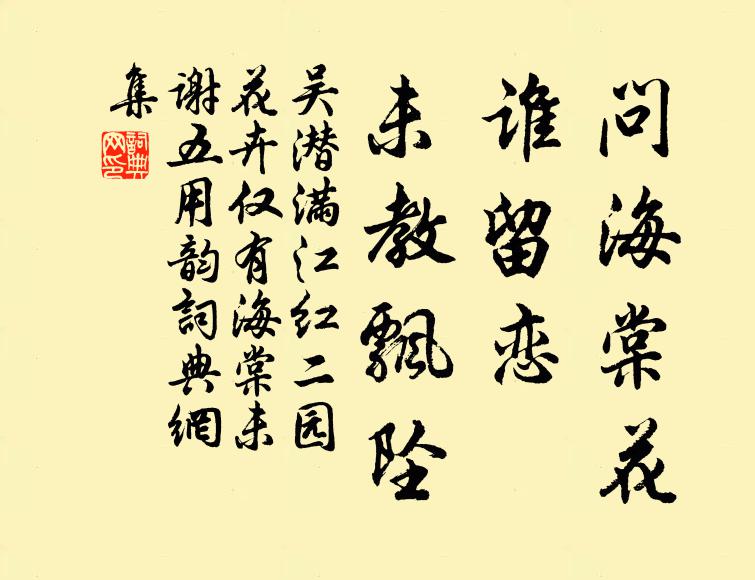 问海棠花
谁留恋
未教飘坠
吴潜满江红二园
花卉仅有海棠未
谢五用韵詞典網
集
詞典
网印